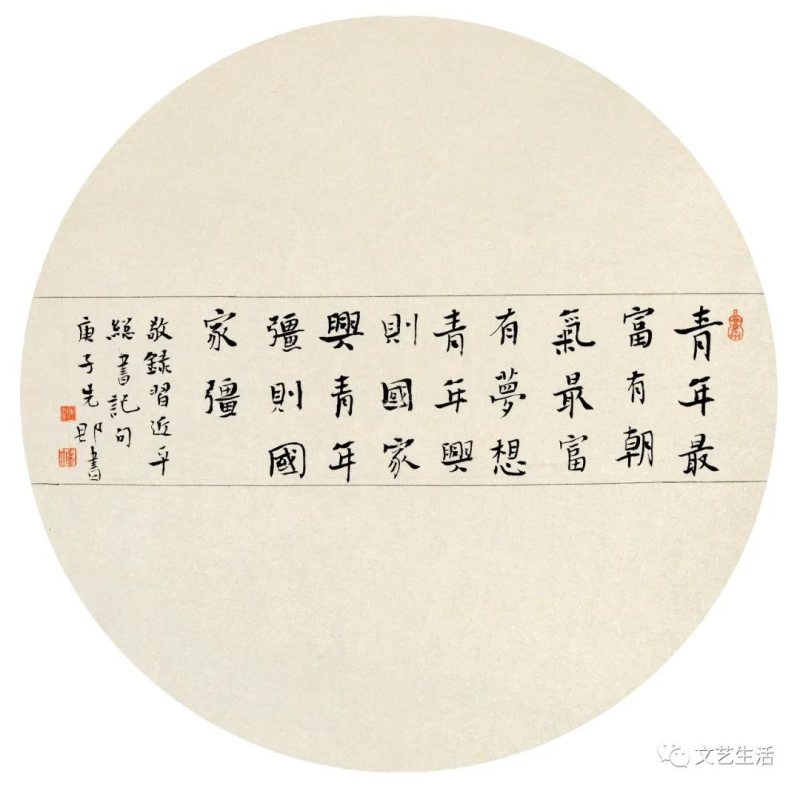 青年最
富有朝
氣最富
有夢想
青年興
則國家
興青年
彊則國
家彊
敬録習近平
總書記句
庚子先書
文艺生活